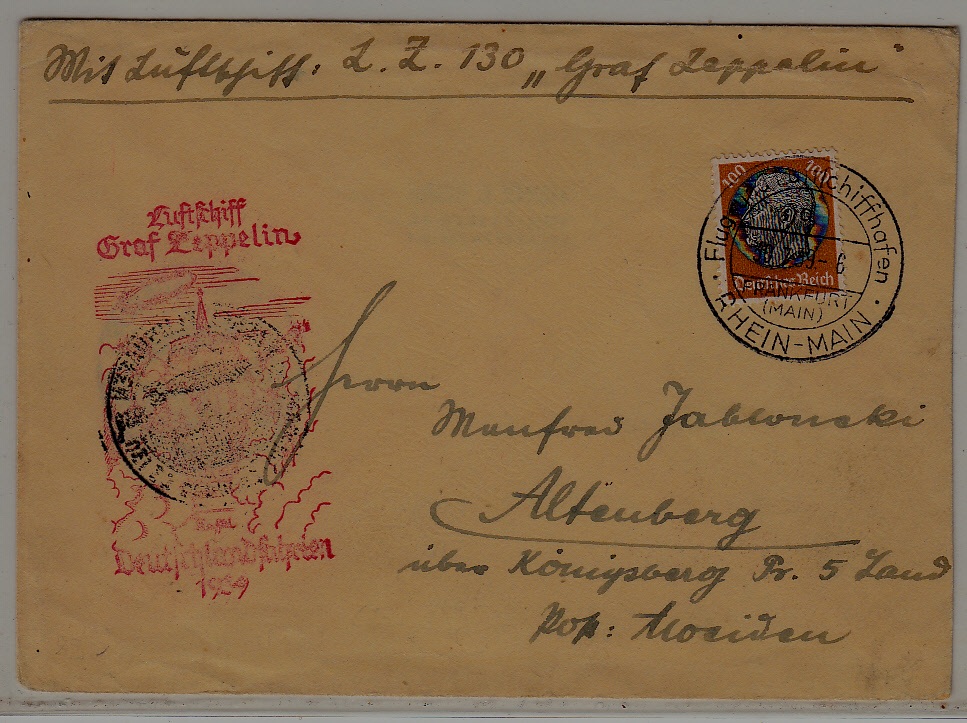 Mit Luftschiff: L. Z. 130 „Graf Zeppelin"
100 100
Deutsches Reich
Flug- und Luftschiffhafen
39-6
FRANKFURT
(MAIN)
RHEIN-MAIN
Luftschiff
Graf Zeppelin
Deutschlandfahrten
1939
Herrn
Manfred Jablonski
Altenberg
über Königsberg Pr. 5 Land